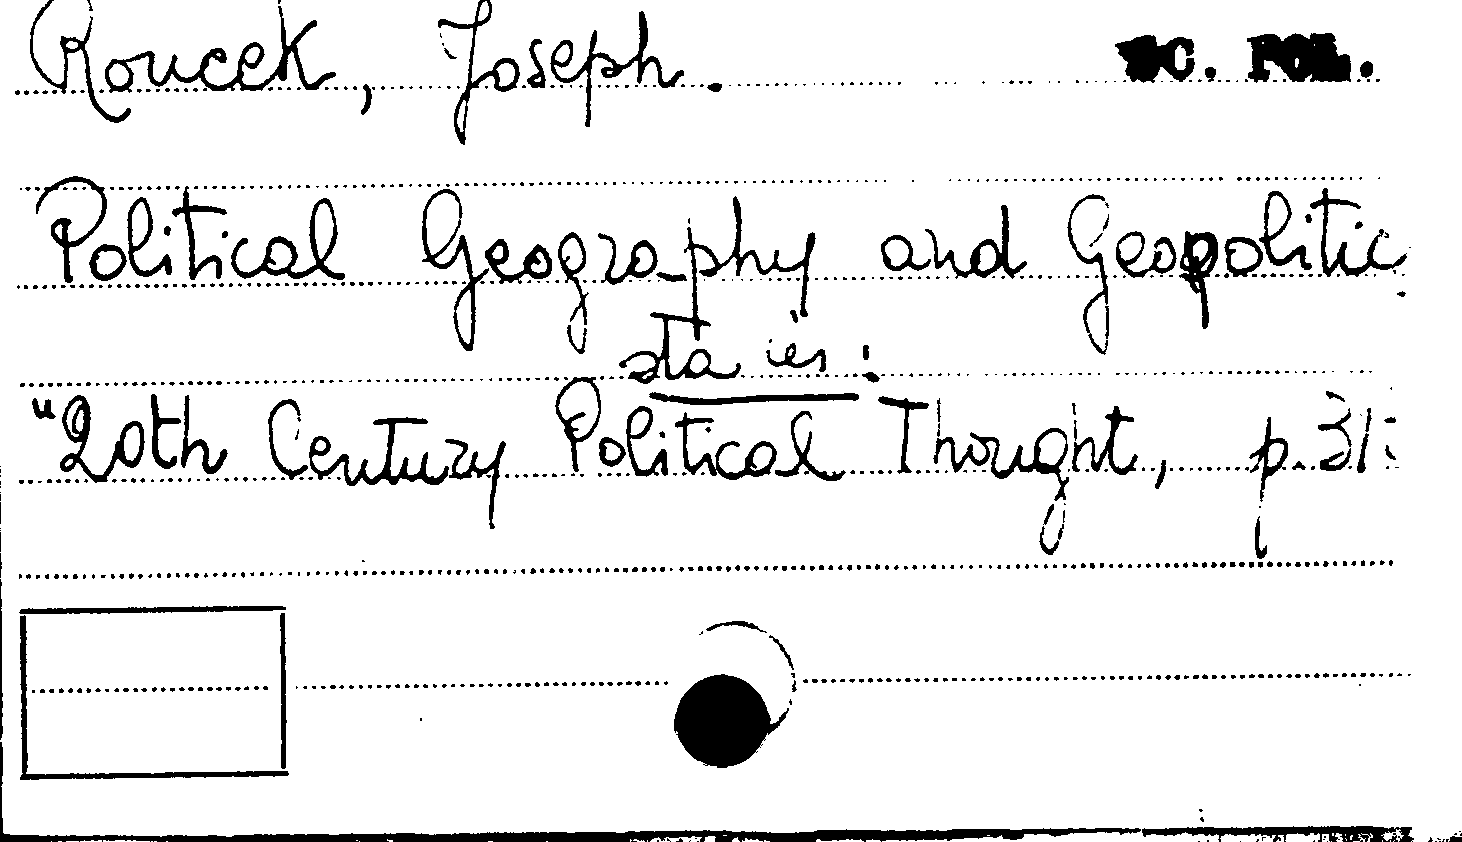 Roucek, Joseph. SC. POL.
Political Geography and Geopolitic
sta in:
"20th Century Political Thought, p.31